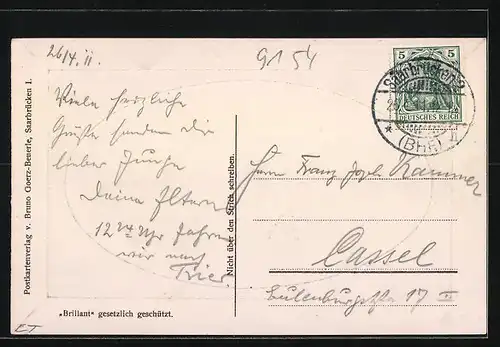 26/4. 11.
9154
5 5
Saarbrücken 3
DEUTSCHES REICH
* (Bhf)
Viele herzliche
Grüße senden dir
lieber Junge
Deine Eltern
12 Uhr fahren
wir nach
Trier
Herrn Franz Jos. Kammer
Cassel
Eulenburgstr. 17 III
Postkartenverlag v. Bruno Goerz-Beuerle, Saarbrücken 1.
Nicht über den Strich schreiben.
„Brillant“ gesetzlich geschützt.